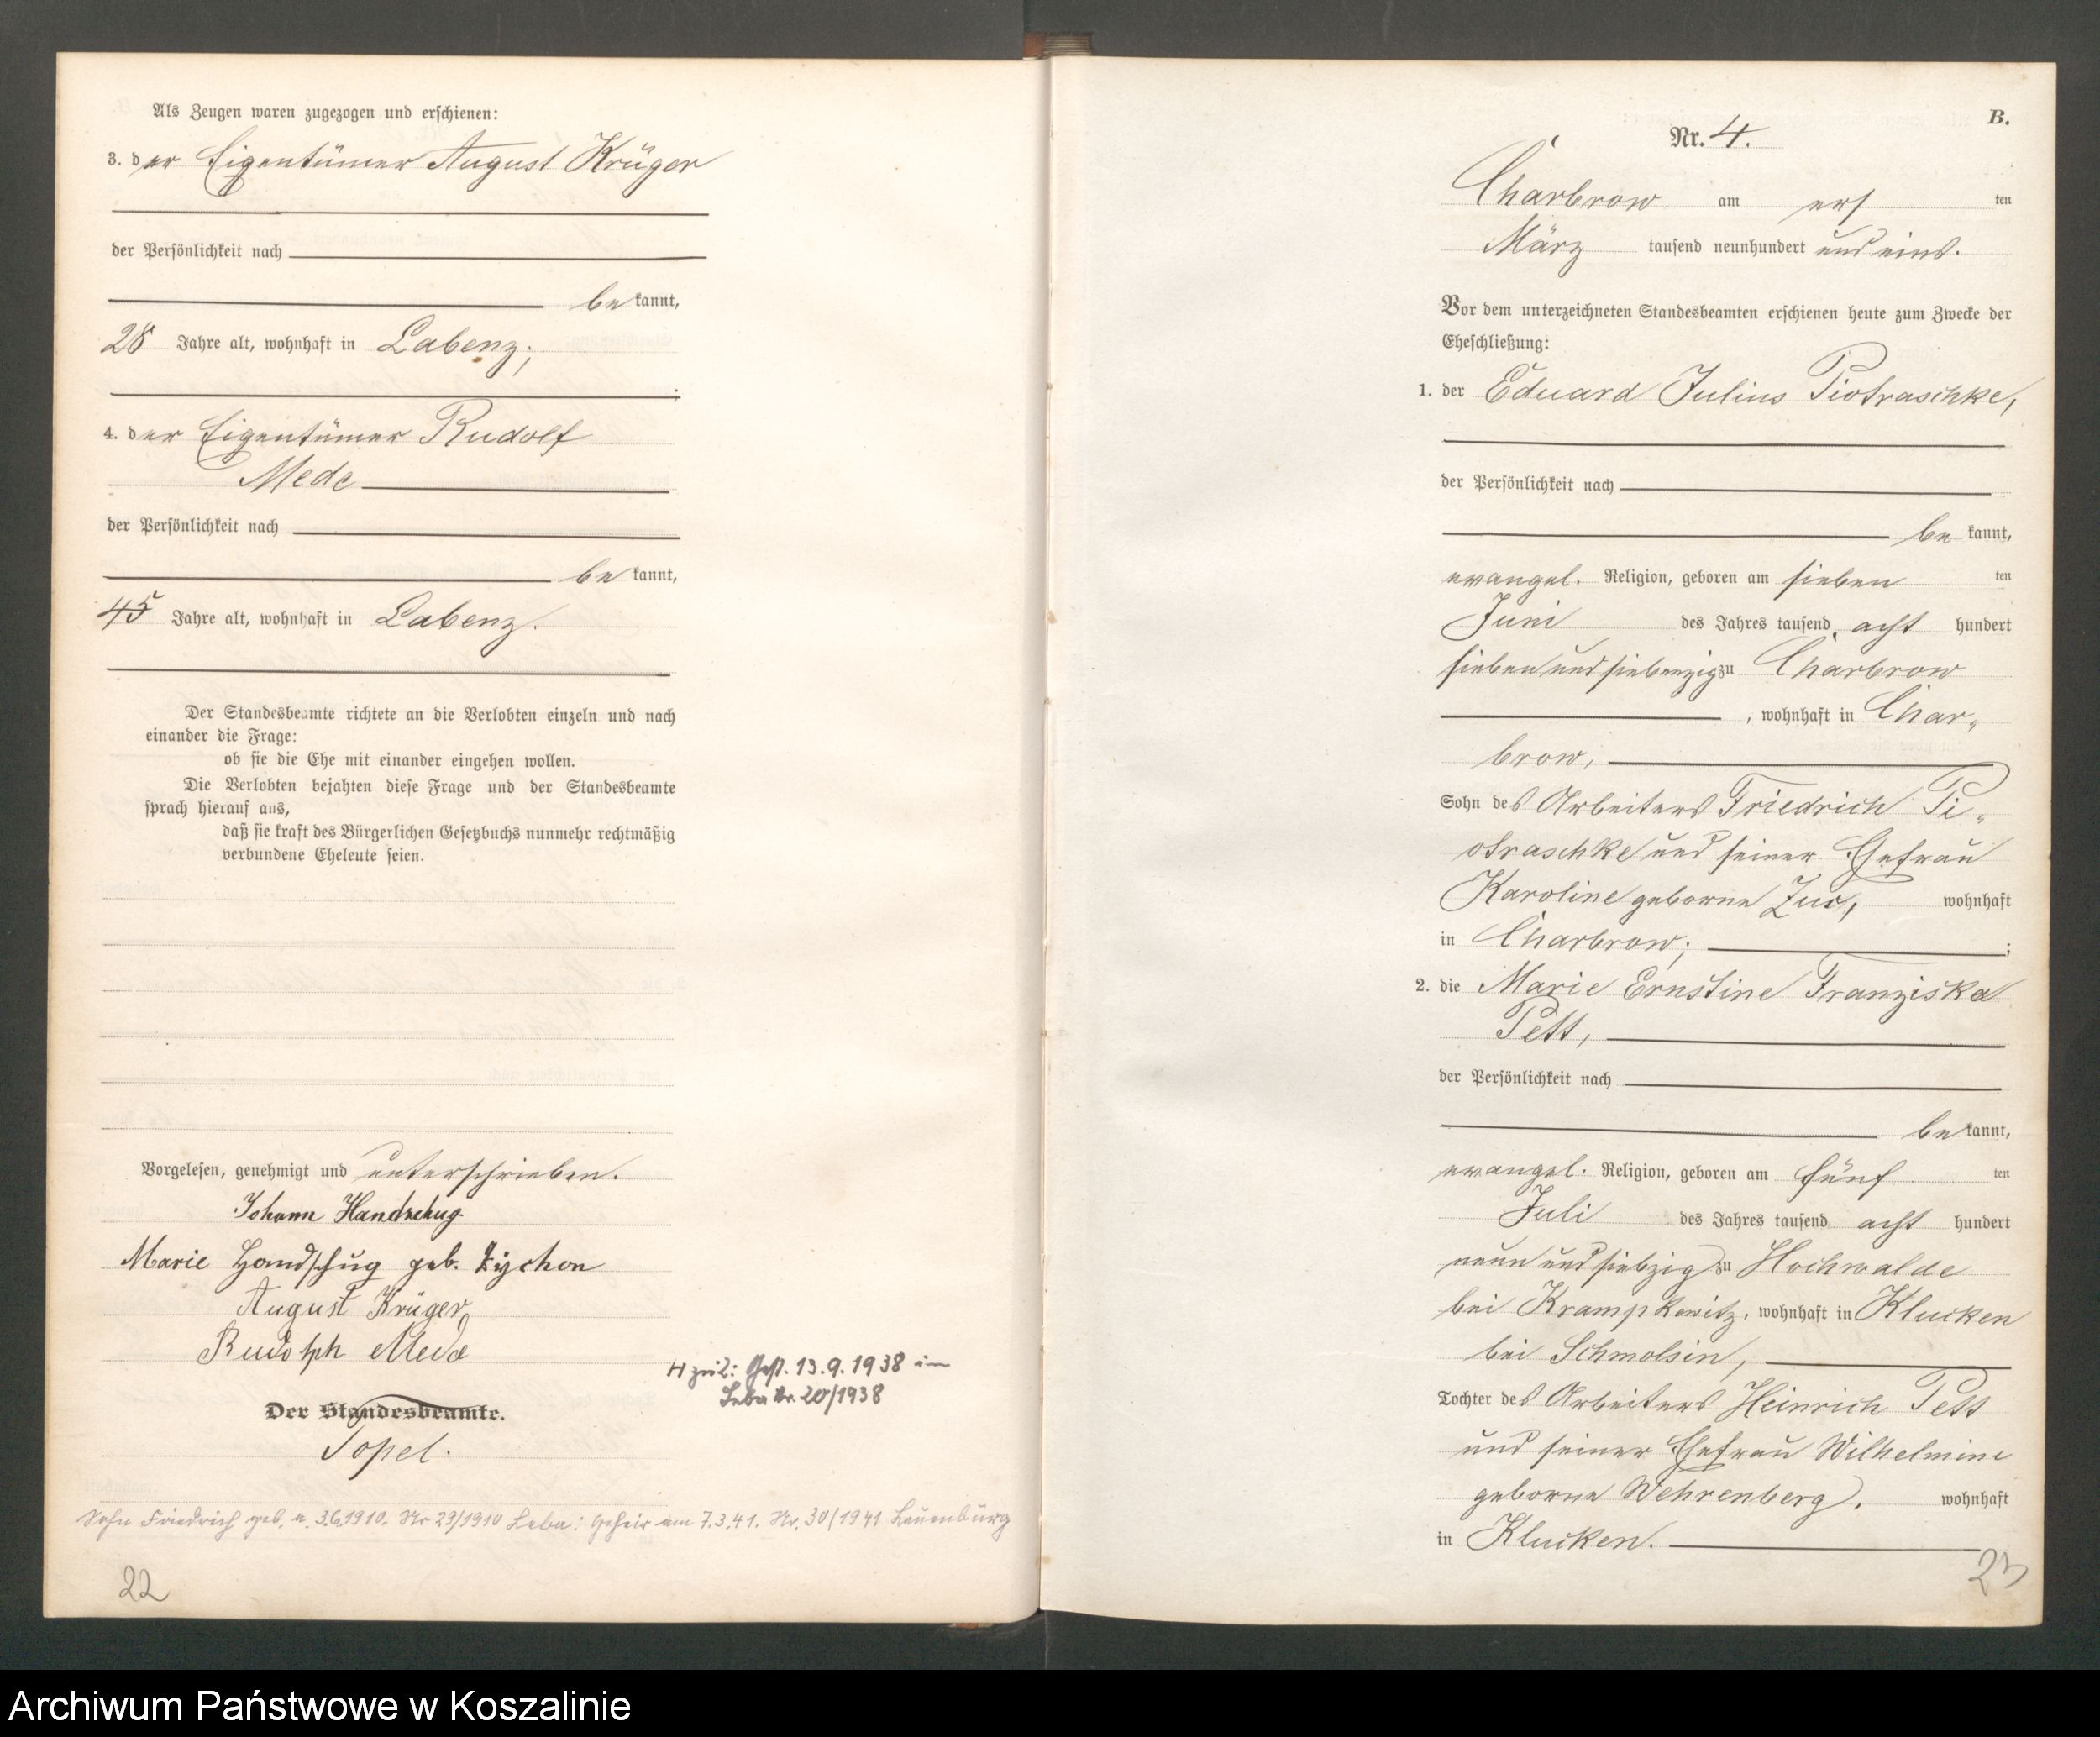 Als Zeugen waren zugezogen und erschienen:
3. der Eigentümer August Krüger
der Persönlichkeit nach
bekannt,
28 Jahre alt, wohnhaft in Labenz;
;
4. der Eigentümer Rudolf
Mede
der Persönlichkeit nach
bekannt,
45 Jahre alt, wohnhaft in Labenz.
Der Standesbeamte richtete an die Verlobten einzeln und nach
einander die Frage:
ob sie die Ehe mit einander eingehen wollen.
Die Verlobten bejahten diese Frage und der Standesbeamte
sprach hierauf aus,
daß sie kraft des Bürgerlichen Gesetzbuchs nunmehr rechtmäßig
verbundene Eheleute seien.
Vorgelesen, genehmigt und unterschrieben.
Johann
Marie Handschug geb. Zychon
August Krüger
Rudolph Mede
H zu 2: Gest. 13.9.1938 in
Leba Nr. 20/1938
Der Standesbeamte.
Topel.
Sohn Friedrich geb. a. 3.6.1910. Nr 29/1910 Leba: Geheir am 7.3.41. Nr. 30/1941 Lauenburg
22
B.
Nr. 4.
Charbrow am ersten
März tausend neunhundert und eins.
Vor dem unterzeichneten Standesbeamten erschienen heute zum Zwecke der
Eheschließung:
1. der Eduard Julius Piotraschke,
der Persönlichkeit nach
bekannt,
evangel. Religion, geboren am siebenten
Juni des Jahres tausend acht hundert
sieben und siebenzig zu Charbrow
, wohnhaft in Char„
brow,
Sohn des Arbeiters Friedrich Pi„
otraschke und seiner Ehefrau
Karoline geborne wohnhaft
in Charbrow; ;
2. die Marie Ernstine Franziska
Pett,
der Persönlichkeit nach
bekannt,
evangel. Religion, geboren am fünften
Juli des Jahres tausend acht hundert
neun und siebzig zu Hochwalde
bei Krampkewitz, wohnhaft in Klucken
bei Schmolsin,
Tochter des Arbeiters Heinrich Pett
und seiner Ehefrau Wilhelmine
geborne Wehrenberg. wohnhaft
in Klucken.
23
Archiwum Państwowe w Koszalinie